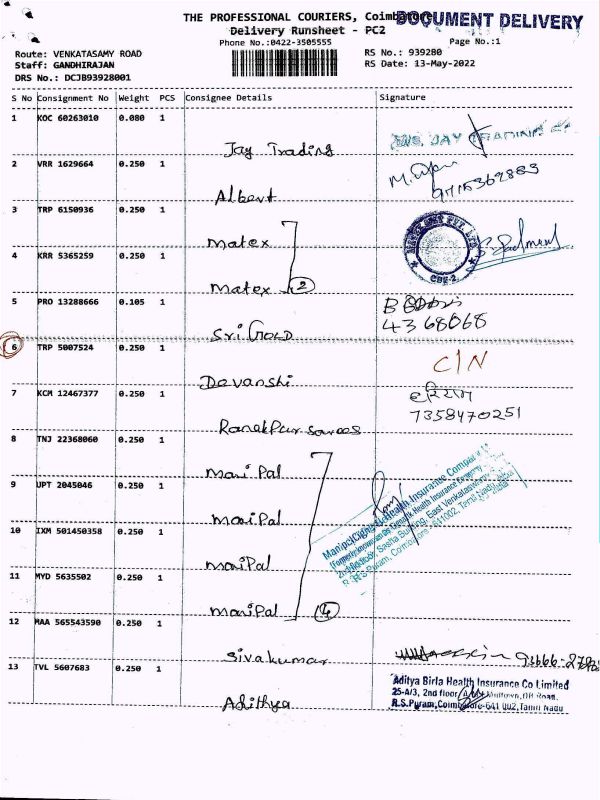 THE PROFESSIONAL COURIERS, Coimbatore
DOCUMENT DELIVERY
Delivery Runsheet - PC2
Phone No.:0422-3505555
Page No.:1
Route: VENKATASAMY ROAD
RS No.: 939280
Staff: GANDHIRAJAN
RS Date: 13-May-2022
DRS No.: DCJB93928001
S No Consignment No Weight PCS Consignee Details Signature
1 KOC 60263010 0.080 1
Jay Trading
JAY TRADING
2 VRR 1629664 0.250 1
Albert
9715362883
3 TRP 6150936 0.250 1
Matex
4 KRR 5365259 0.250 1
Matex 2
CBE-2
5 PRO 13288666 0.105 1
Sri GOLD
4368068
6 TRP 5007524 0.250 1
Devanshi
C/N
7 KCM 12467377 0.250 1
Ranakpur sarees
7358470251
8 TNJ 22368060 0.250 1
ManiPal
9 UPT 2045046 0.250 1
ManiPal
10 IXM 501450358 0.250 1
ManiPal
11 MYD 5635502 0.250 1
ManiPal 4
Health Insurance Company
East Venkatasamy
R.S.Puram, Coimbatore - 641002, Tamil Nadu
12 MAA 565543590 0.250 1
Sivakumar
13 TVL 5607683 0.250 1
Adithya
Aditya Birla Health Insurance Co Limited
25-A/3, 2nd floor, DB Road,
R.S.Puram, Coimbatore-641 002, Tamil Nadu